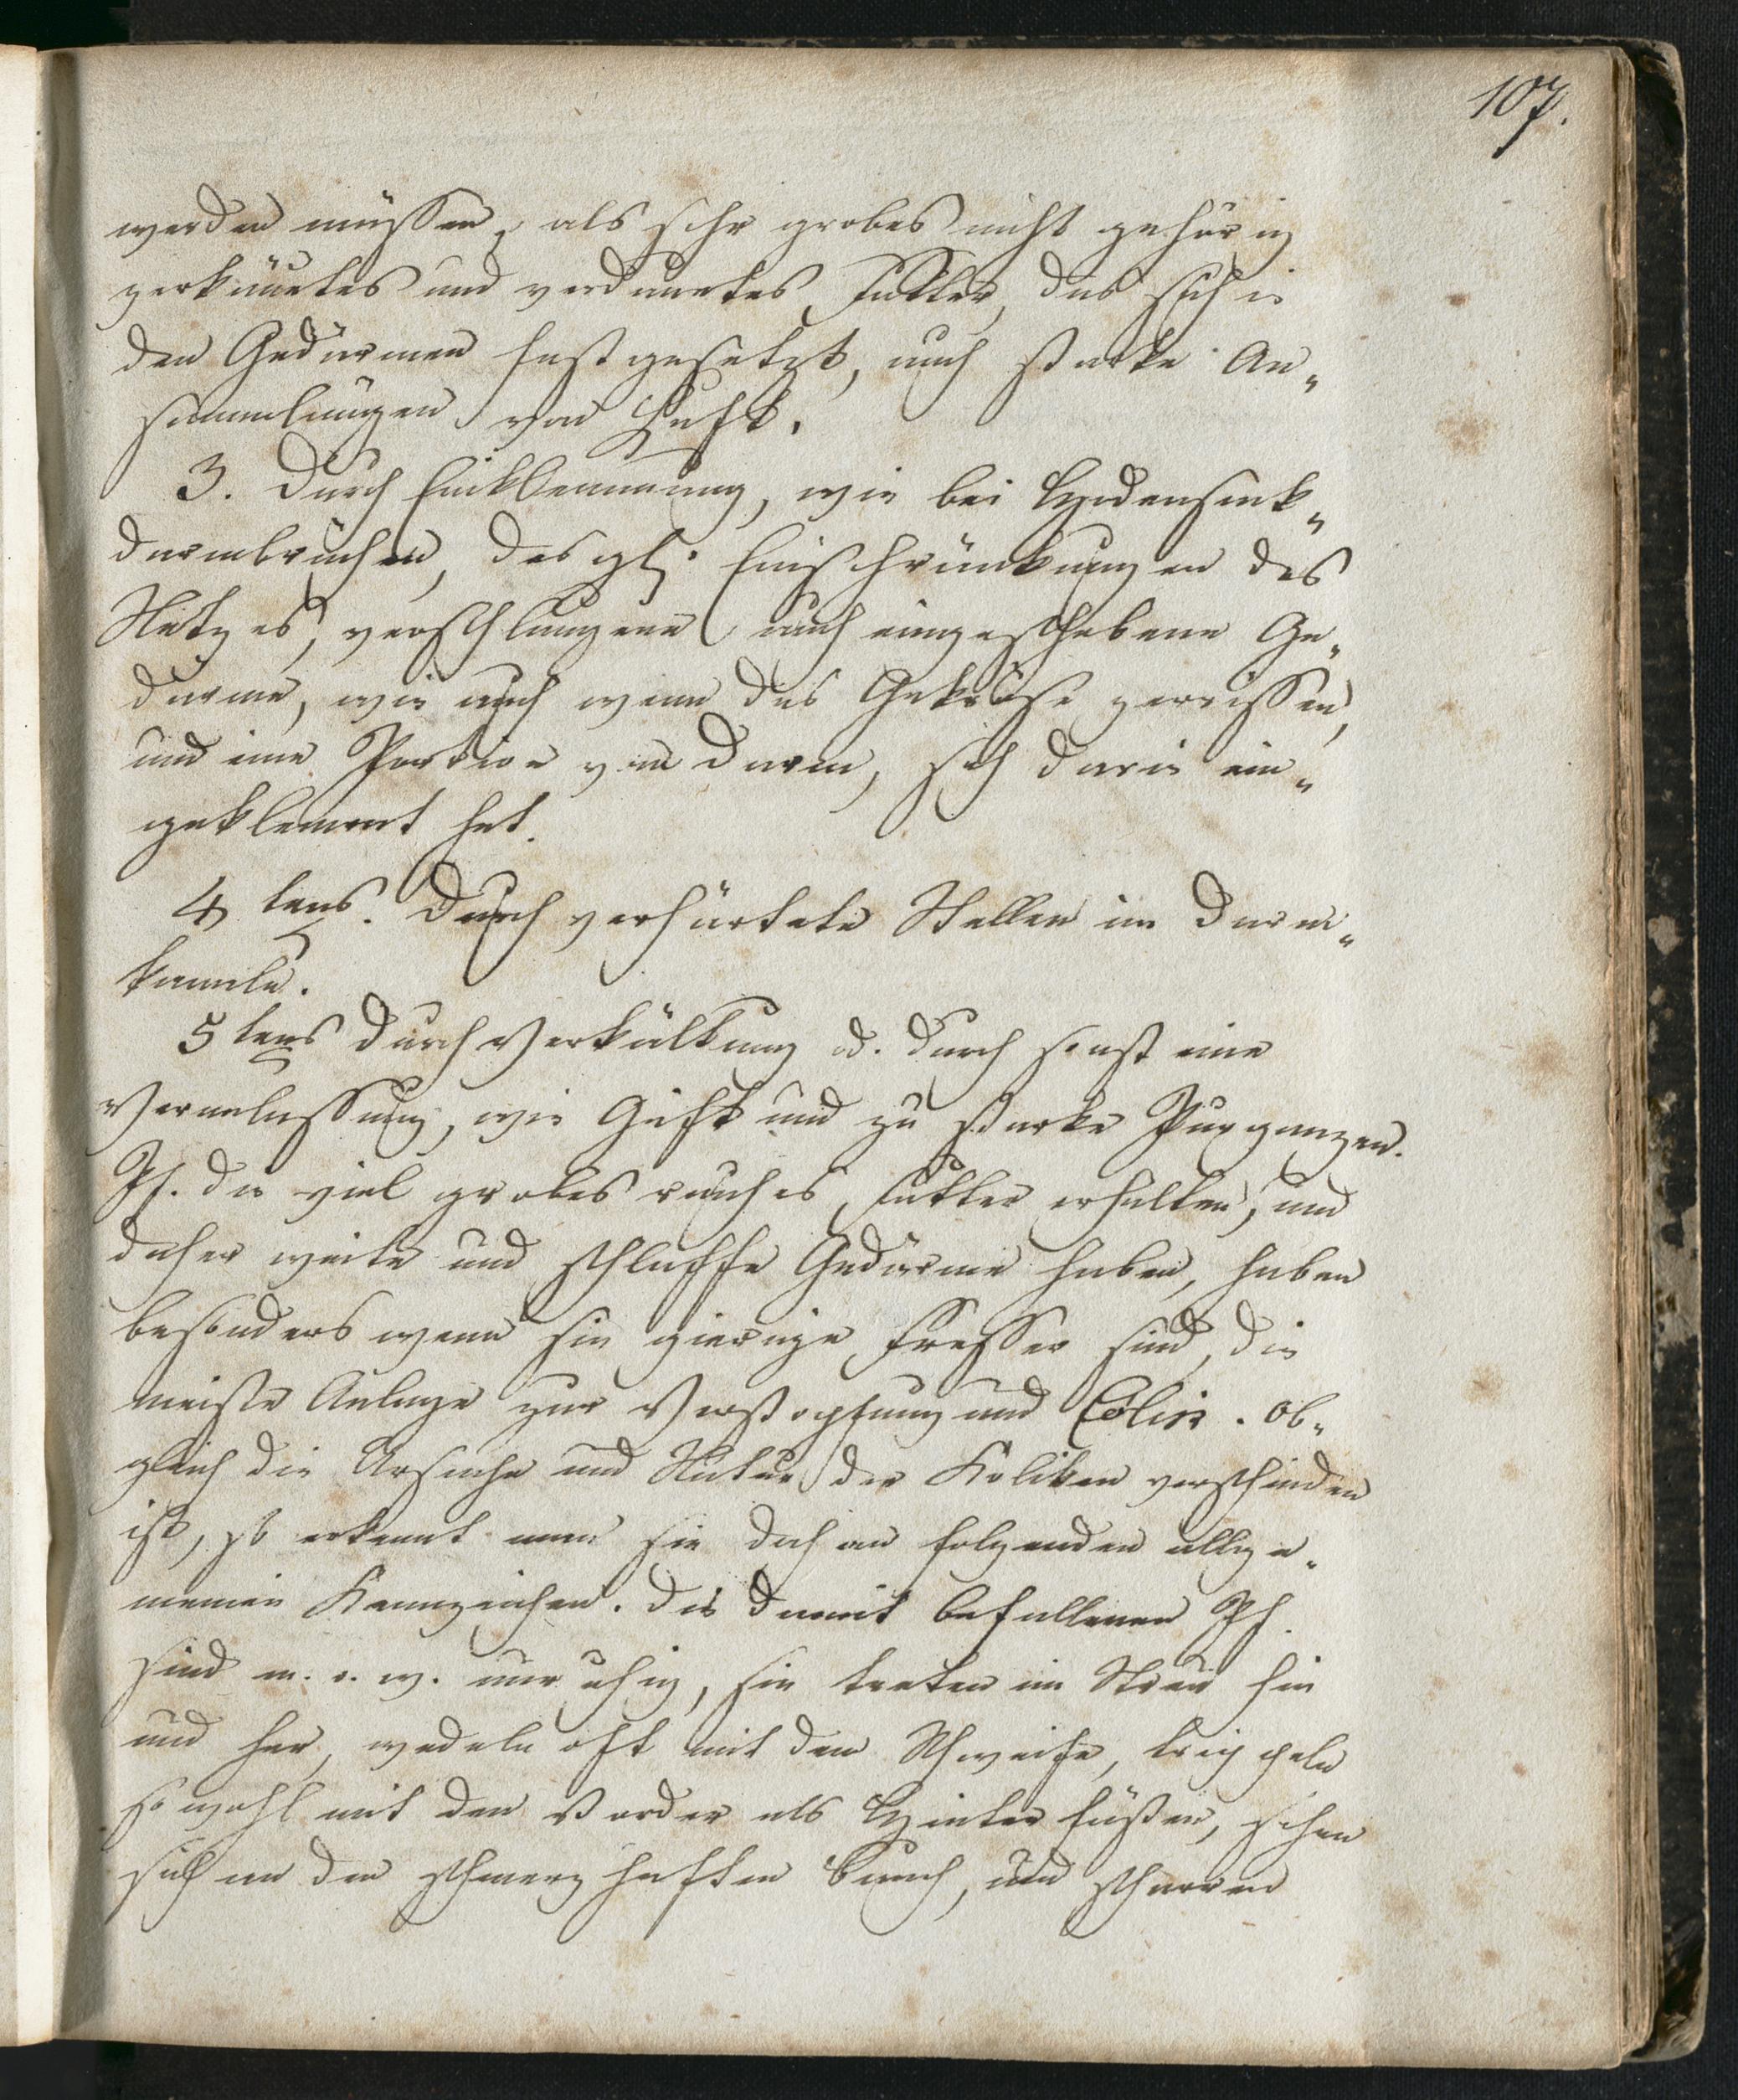 107.
werden müssen, als sehr grobes nicht gehörig
zerkäuetes und verdauetes Futter, das sich in
den Gedärmen festgesetzt, auch starke An-
sammlungen von Luft.
3. Durch Einklemmung, wie bei Hodensack-
darmbrüchen, desgl. Einschränkungen des
Netzes, verschlungene auch eingeschobene Ge-
därme, wie auch wenn das Gekröse zerrissen,
und eine Portion vom Darm, sich darin ein-
geklemmt hat.
4 tens. Durch verhärtete Stellen im Darm-
kanale.
5 tens Durch Verkältung od. durch sonst eine
Veranlassung, wie Gift und zu starke Purganzen.
Pf. die viel grobes rauhes Futter erhalten, und
daher weite und schlaffe Gedärme haben, haben
besonders wenn sie gierige Fresser sind, die
meiste Anlage zur Verstopfung und Colik. Ob-
gleich die Ursache und Natur der Koliken verschieden
ist, so erkennt man sie doch an folgenden allge-
meinen Kennzeichen. Die damit befallenen Pf.
sind m. o. w. unruhig, sie treten im Stan hin
und her, wedeln oft mit dem Schweife, trippeln
sowohl mit den Vorder als Hinterfüßen, sehen
sich an den schmerzhaften Bauch, und scharren